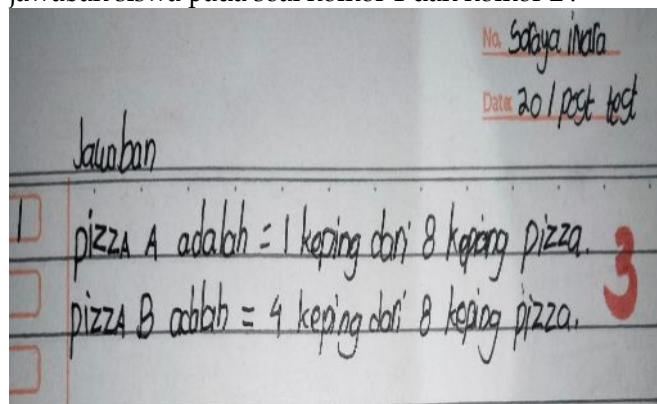 jawaban siswa pada soal nomor 1 dan nomor 2 :
No. Soraya inara
Date: 20 / post test
Jawaban
1 pizza A adalah = 1 keping dari 8 keping pizza.
pizza B adalah = 4 keping dari 8 keping pizza.
3